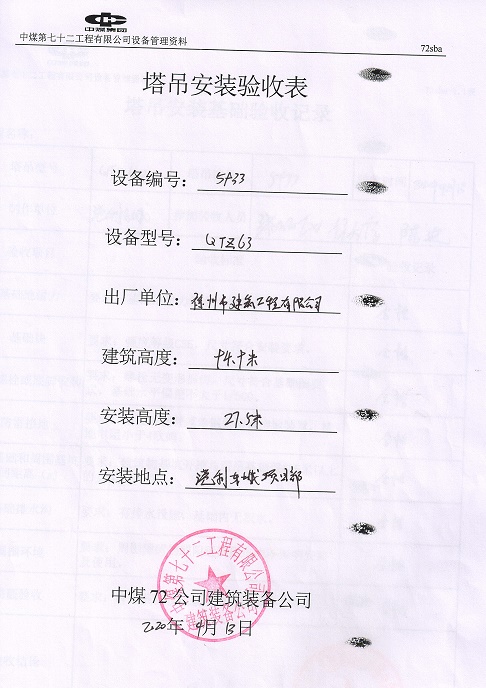 中煤集团
中煤第七十二工程有限公司设备管理资料 72sba
塔吊安装验收表
设备编号: 5933
设备型号: QTZ63
出厂单位: 徐州市建筑工程有限公司
建筑高度: 米
安装高度: 27.5米
安装地点: 项目部
中煤第七十二工程有限公司
建筑装备公司
中煤 72 公司建筑装备公司
2020年 4月 13日